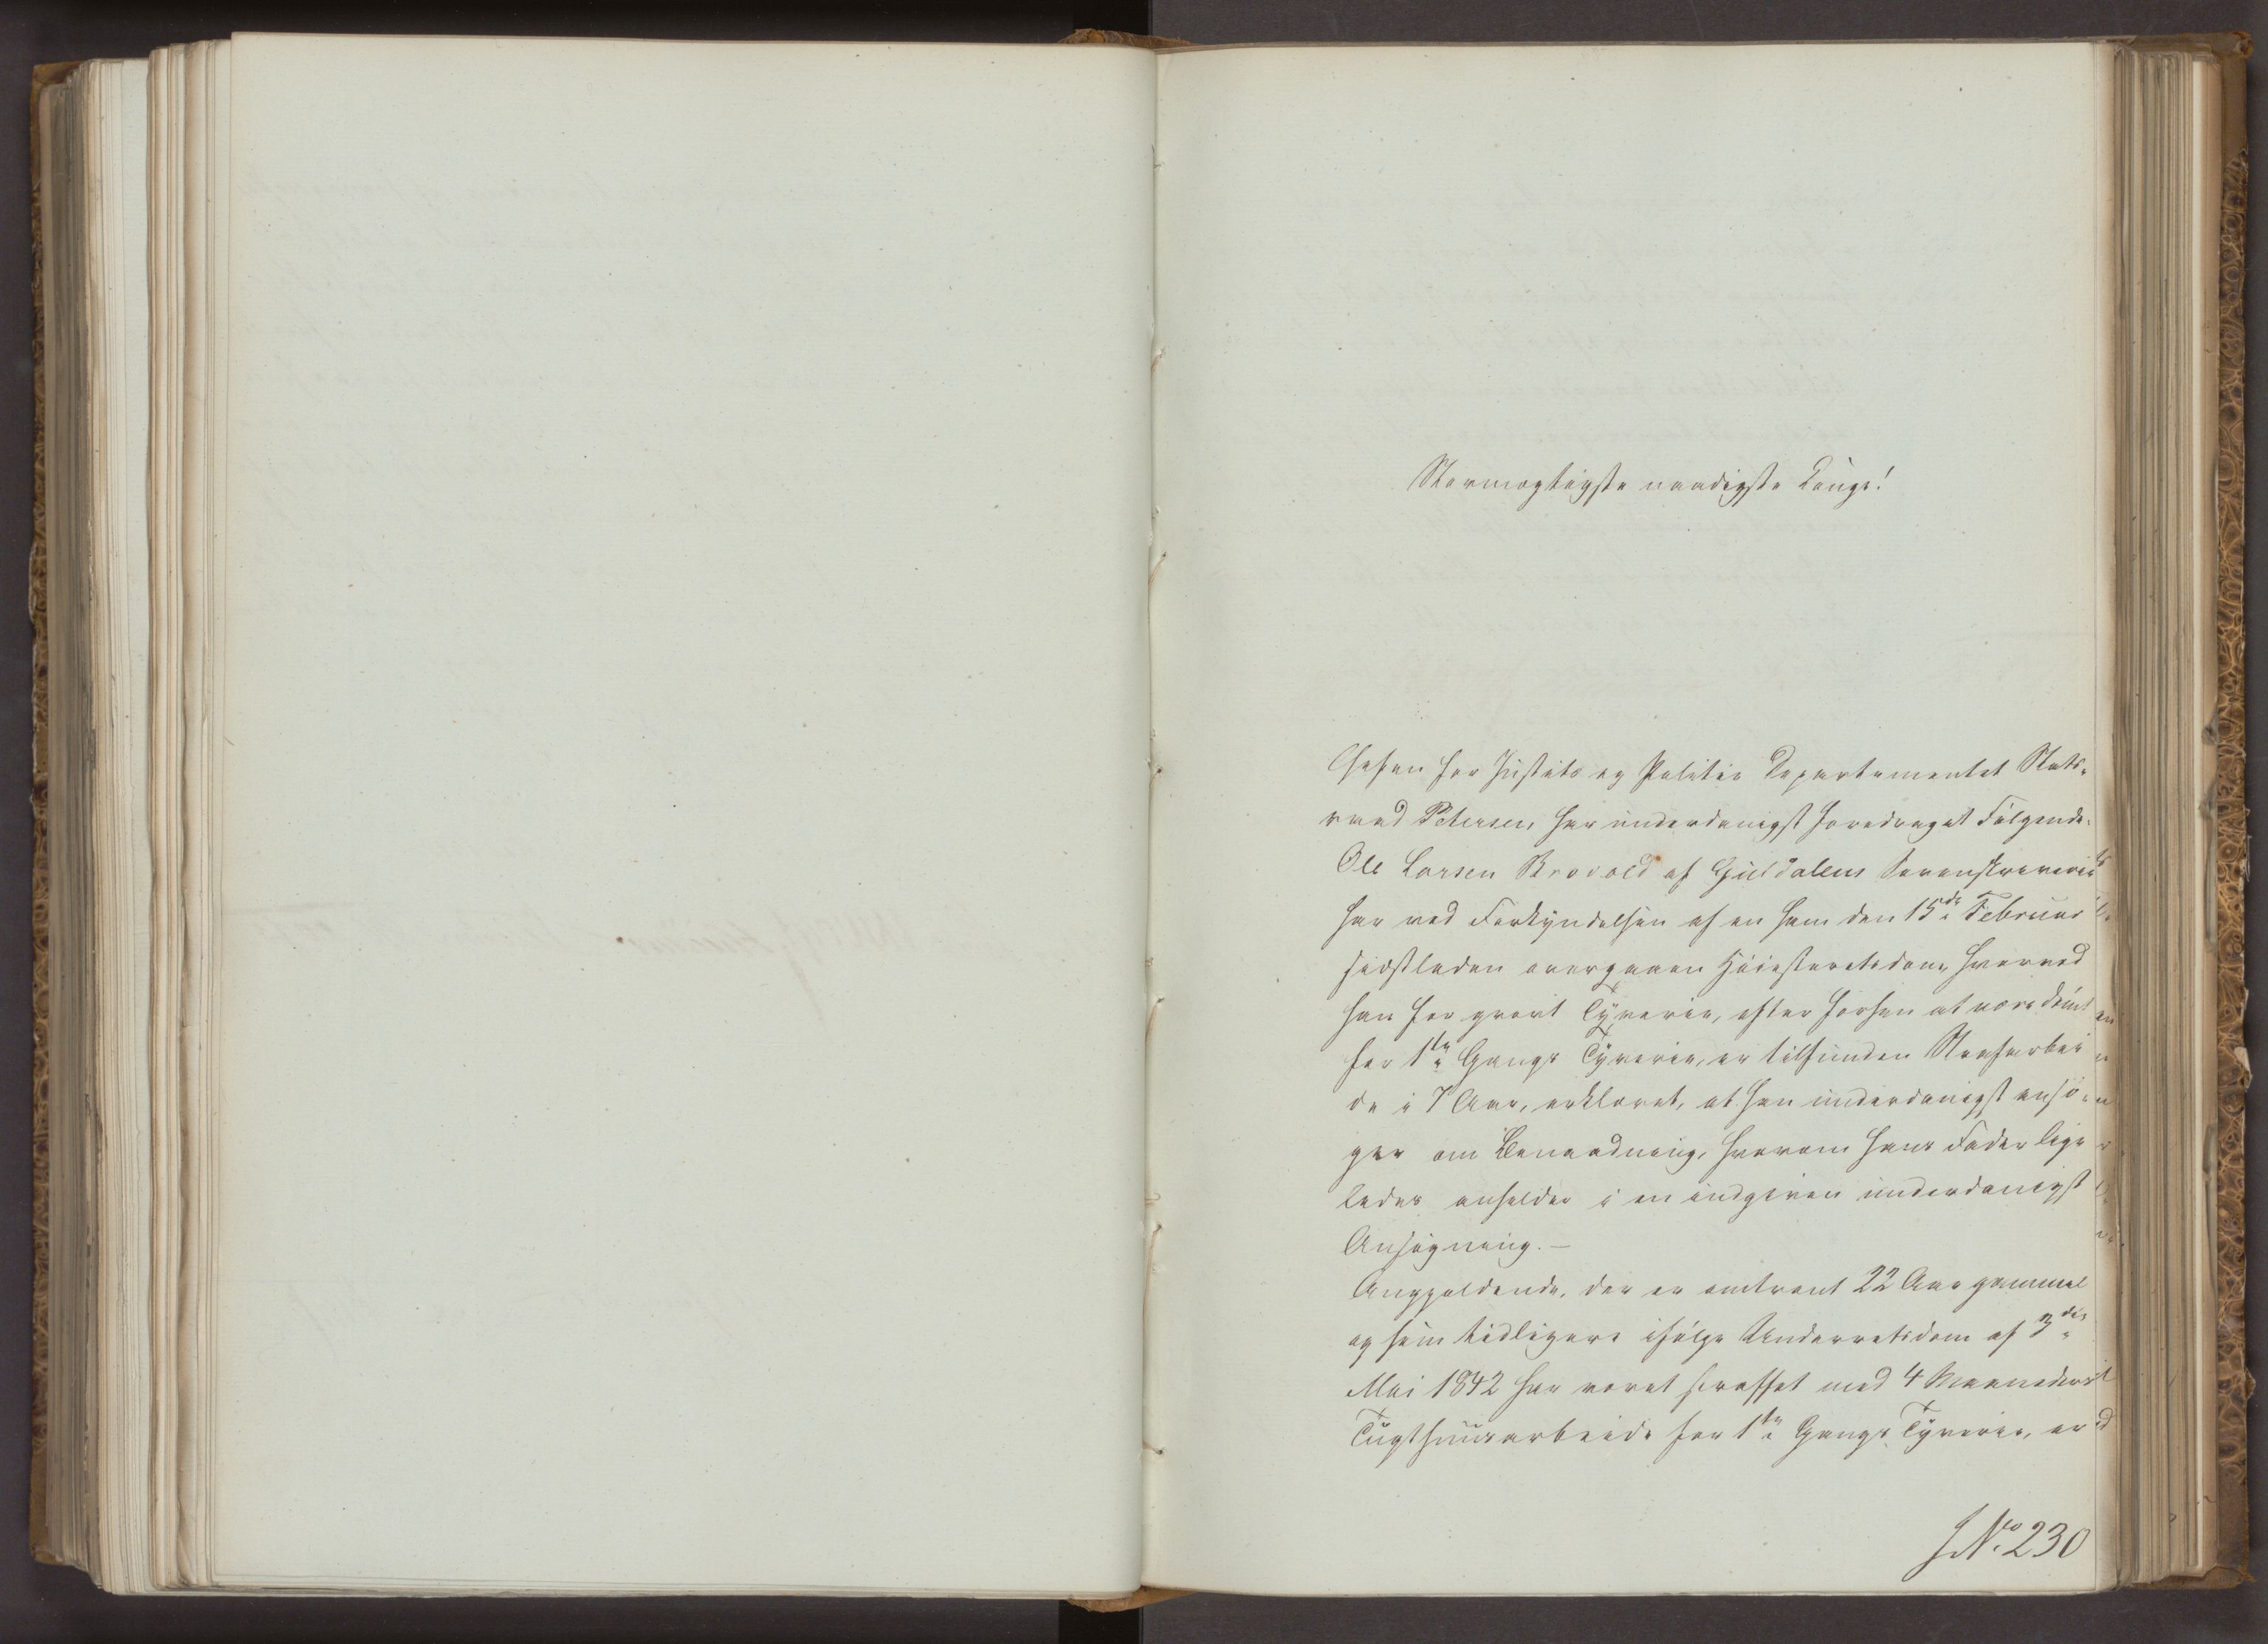 Stormægtigste naadigste Konge!
Chefen for Justits og Politie Departementet Stats-
raad Petersen, har underdanigst foredraget Følgende:
Ole Larsen Brovold af Guldalens Sorenskriverie
har ved Forkyndelsen af en ham den 15de Februar
sidstleden overgaaen Høiesteretsdom, hvorved
han for grovt Tyverie, efter forhen at være dømt
for 1te Gangs Tyverie, er tilfunden Strafarbei
de i 7 Aar, erklæret, at han underdanigst ansø-
ger om Benaadning, hvorom hans Fader lige
ledes anholder i en indgiven underdanigst
Ansøgning. —
Angjeldende, der er omtrent 22 Aar gammel
og som tidligere ifølge Underretsdom af 3die
Mai 1842 har været straffet med 4 Maaneders
Tugthuusarbeide for 1te Gangs Tyverie, er
J. No. 230